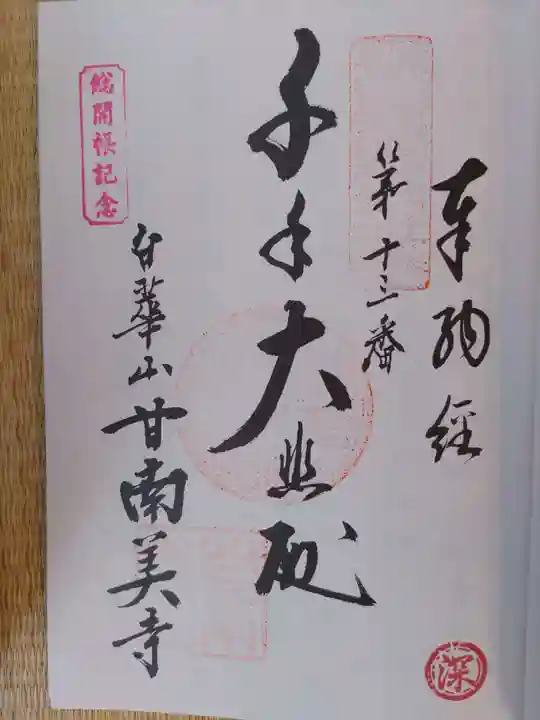 奉納経
第十三番
千手大悲殿
台華山甘南美寺
御開帳記念
深